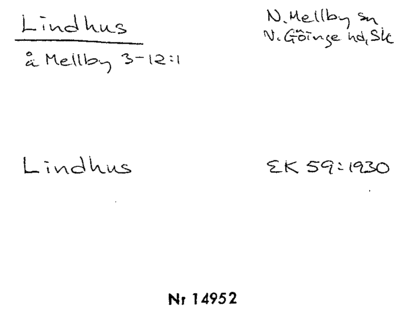 Lindhus
N. Mellby sn
å Mellby 3-12:1
V. Göinge hd, Sk
Lindhus
EK 59:1930
Nr 14952